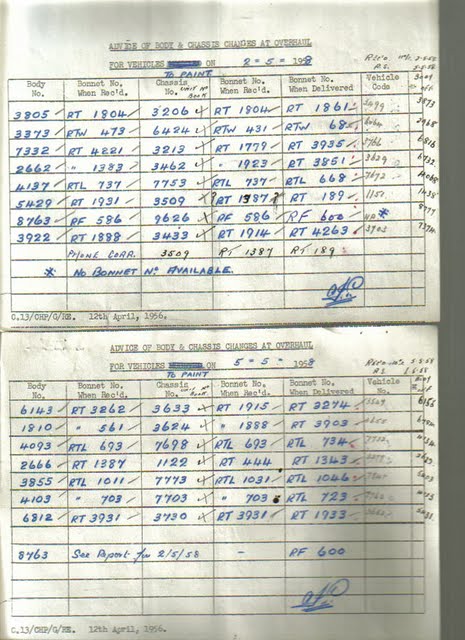 ADVICE OF BODY & CHASSIS CHANGES AT OVERHAUL
FOR VEHICLES ON 2 = 5 = 1958
TO PAINT
Body No. Bonnet No. When Rec'd. Chassis No. UNIT Nº BOOK Bonnet No. When Rec'd. Bonnet No. When Delivered Vehicle Code
3805 RT 1804 3206 RT 1804 RT 1861 3873
3373 RTW 473 6424 RTW 431 RTW 68
7332 RT 4221 3213 RT 1779 RT 3935
2662 " 1383 3462 " 1923 RT 3851
4137 RTL 737 7753 RTL 737 RTL 668
5429 RT 1931 3509 RT 1387 RT 189
8763 RF 586 9626 RF 586 RF 600
3922 RT 1888 3433 RT 1914 RT 4263
PHONE CORR. 3509 RT 1387 RT 189
* NO BONNET Nº AVAILABLE.
C.13/CHP/G/ 12th April, 1956.
ADVICE OF BODY & CHASSIS CHANGES AT OVERHAUL
FOR VEHICLES ON 5 = 5 = 1958
TO PAINT
Body No. Bonnet No. When Rec'd. Chassis No. UNIT Nº BOOK Bonnet No. When Rec'd. Bonnet No. When Delivered Vehicle No.
6143 RT 3262 3633 RT 1915 RT 3274
1810 " 561 3624 " 1888 RT 3903
4093 RTL 693 7698 RTL 693 RTL 734
2666 RT 1387 1122 RT 444 RT 1343
3855 RTL 1011 7773 RTL 1031 RTL 1046
4103 " 703 7703 " 703 RTL 723
6812 RT 3931 3730 RT 3931 RT 1933
8763 See Report for 2/5/58 - RF 600
C.13/CHP/G/ 12th April, 1956.